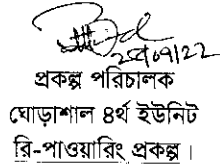 ২৫/০৭/২২
প্রকল্প পরিচালক
ঘোড়াশাল ৪র্থ ইউনিট
রি-পাওয়ারিং প্রকল্প।